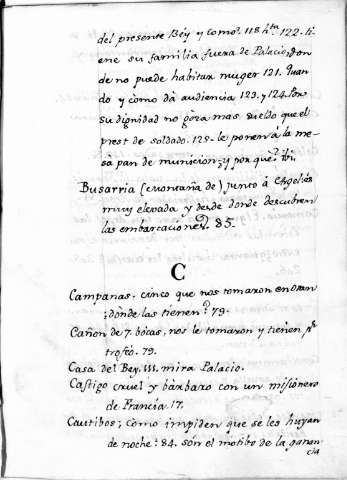 del presente Bey y como? 118 hta. 122. ti-
ene su familia fuera de Palacio, don
de no puede habitar muger 121. Quan
do y còmo dà audiencia 123. y 124. Por
su dignidad no gòza mas sueldo que el
prest de soldado. 125. le ponen á la me-
sa pan de municion; y por què? ibi.
Busarria (montaña de) junto á
muy elevada y desde donde descubren
las embarcaciones. 85.
C
Campanas, cinco que nos tomaron en Oran
; dònde las tienen? 79.
Cañon de 7. bòcas, nos le tomaron y tienen pr.
trofèo. 79.
Casa del Bey. 111. mira Palacio.
Castigo cruel y bàrbaro con un misionero
de Francia 17.
Cautibos; còmo impiden que se les huyan
de noche? 84. són el motibo de la ganan
cia